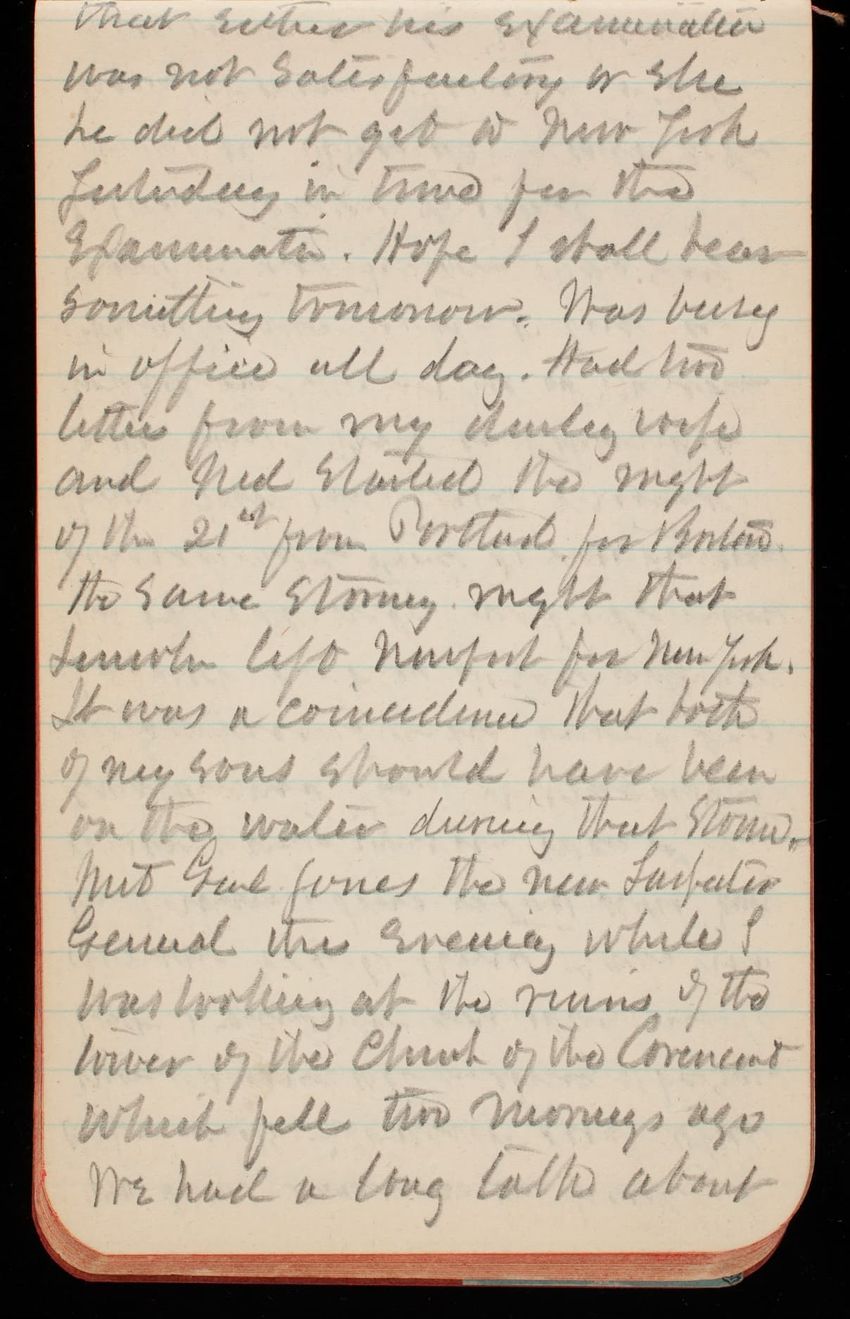 that either his Examination
was not satisfactory or else
he did not get to New York
Saturday in time for the
Examination. Hope I shall hear
something tomorrow. Was busy
in office all day. Had two
letters from my darling wife
and Ned started the night
of the 21st from Portland for Boston
the same stormy night that
Lincoln left Newport for New York.
It was a coincidence that both
of my sons should have been
on the water during that storm.
Met Genl Jones the new Inspector
General this evening while I
was looking at the ruins of the
tower of the Church of the Covenant
which fell two mornings ago
We had a long talk about